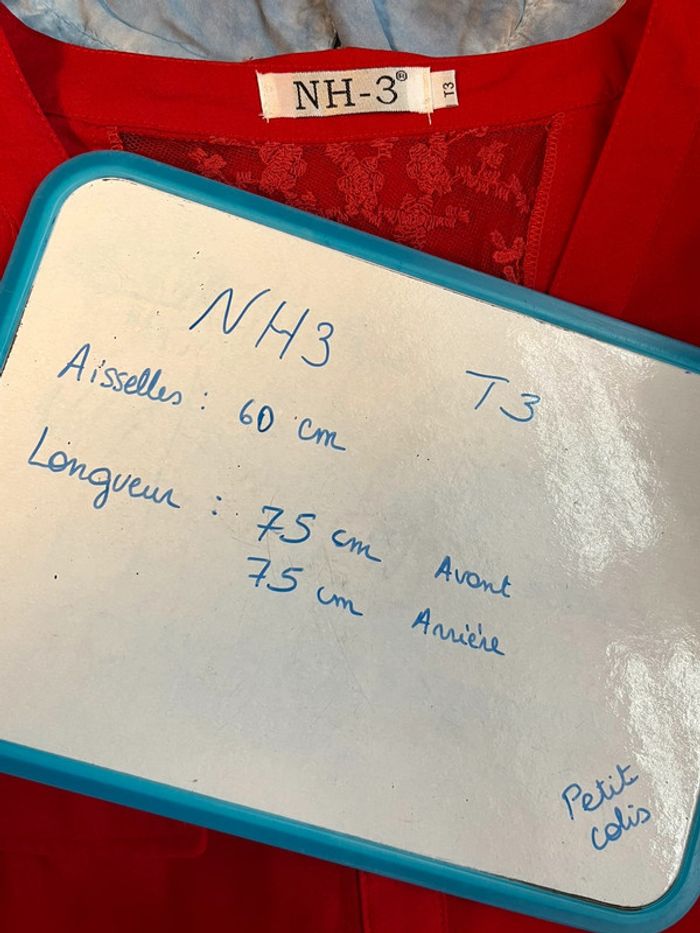 NH-3®
T3
NH3
T3
Aisselles : 60 cm
Longueur : 75 cm Avant
75 cm Arrière
Petit
colis